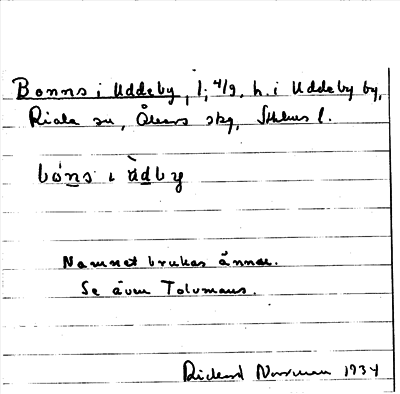 Bonns i Uddeby, 1; 4/9, h. i Uddeby by,
Riala sn, Åkers skg, Sthlms l.
bóns i ùdby
Namnet brukas ännu.
Se även Tolvmans.
Rickard Norrman 1934